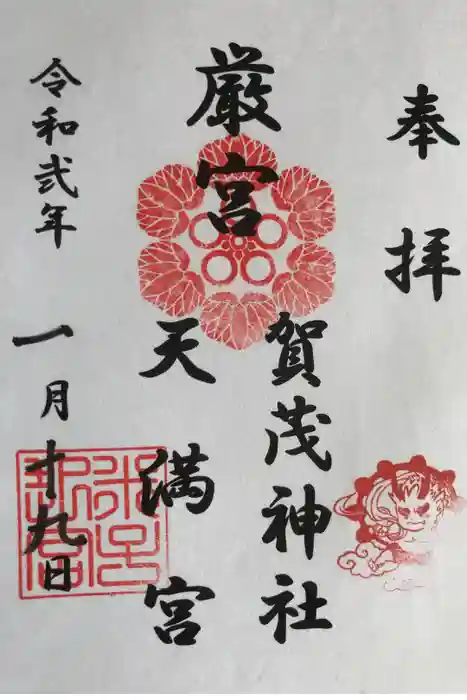 奉拝
厳宮
賀茂神社
天満宮
令和弐年
一月十九日